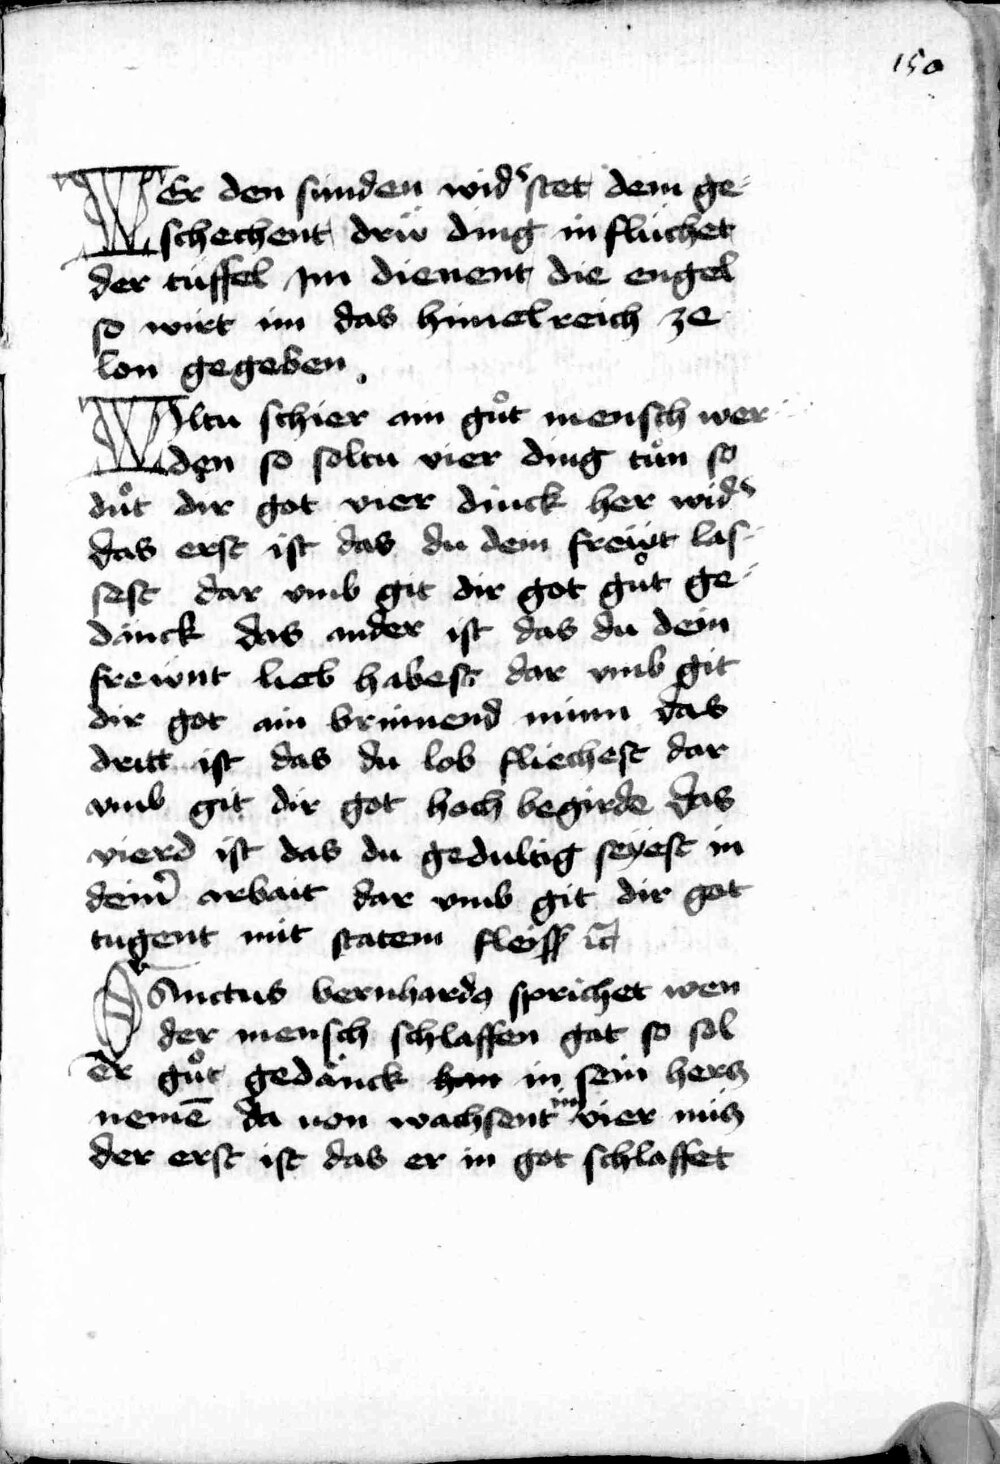 150
WEr den sunden wid᷒stet dem ge-
schechent drü ding in flúchet
der tüffel Jm dienent die engel
so wirt im das himelreich ze
lon gegeben .
WIltu schier ain guͦt mensch wer-
den so soltu vier ding tuͦn so
duͦt dir got vier dinck her wid᷒
das erst ist das du dem freẅt las-
sest dar vmb git dir got guͦt ge-
dänck das ander ist das du dein
freẅnt lieb habest dar vmb git
dir got ain brinnend minn das
dritt ist das du lob fliechest dar
vmb git dir got hoch begirde das
vierd ist das du gedultig seÿest in
dein᷒ arbait dar vmb git dir got
tugent mit stätem fleiss ꝛc
SAnctus bernhardꝰ sprichet wen
der mensch schlaffen gat so sol
er guͦt gedänck han in sein hercz
nemē da uon wachsent im vier nücz
der erst ist das er in got schlaffet